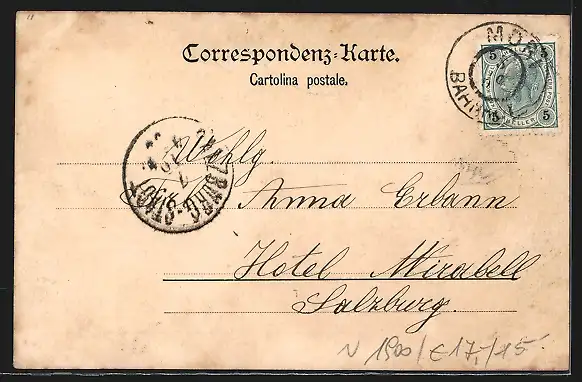 Correspondenz-Karte.
Cartolina postale.
MORI
BAHNHOF
5 5
HELLER
5 5
SALZBURG-STADT
Wohlg.
Anna Erbann
Hotel Mirabell
Salzburg.
N 1900/€ 17,-/15.-